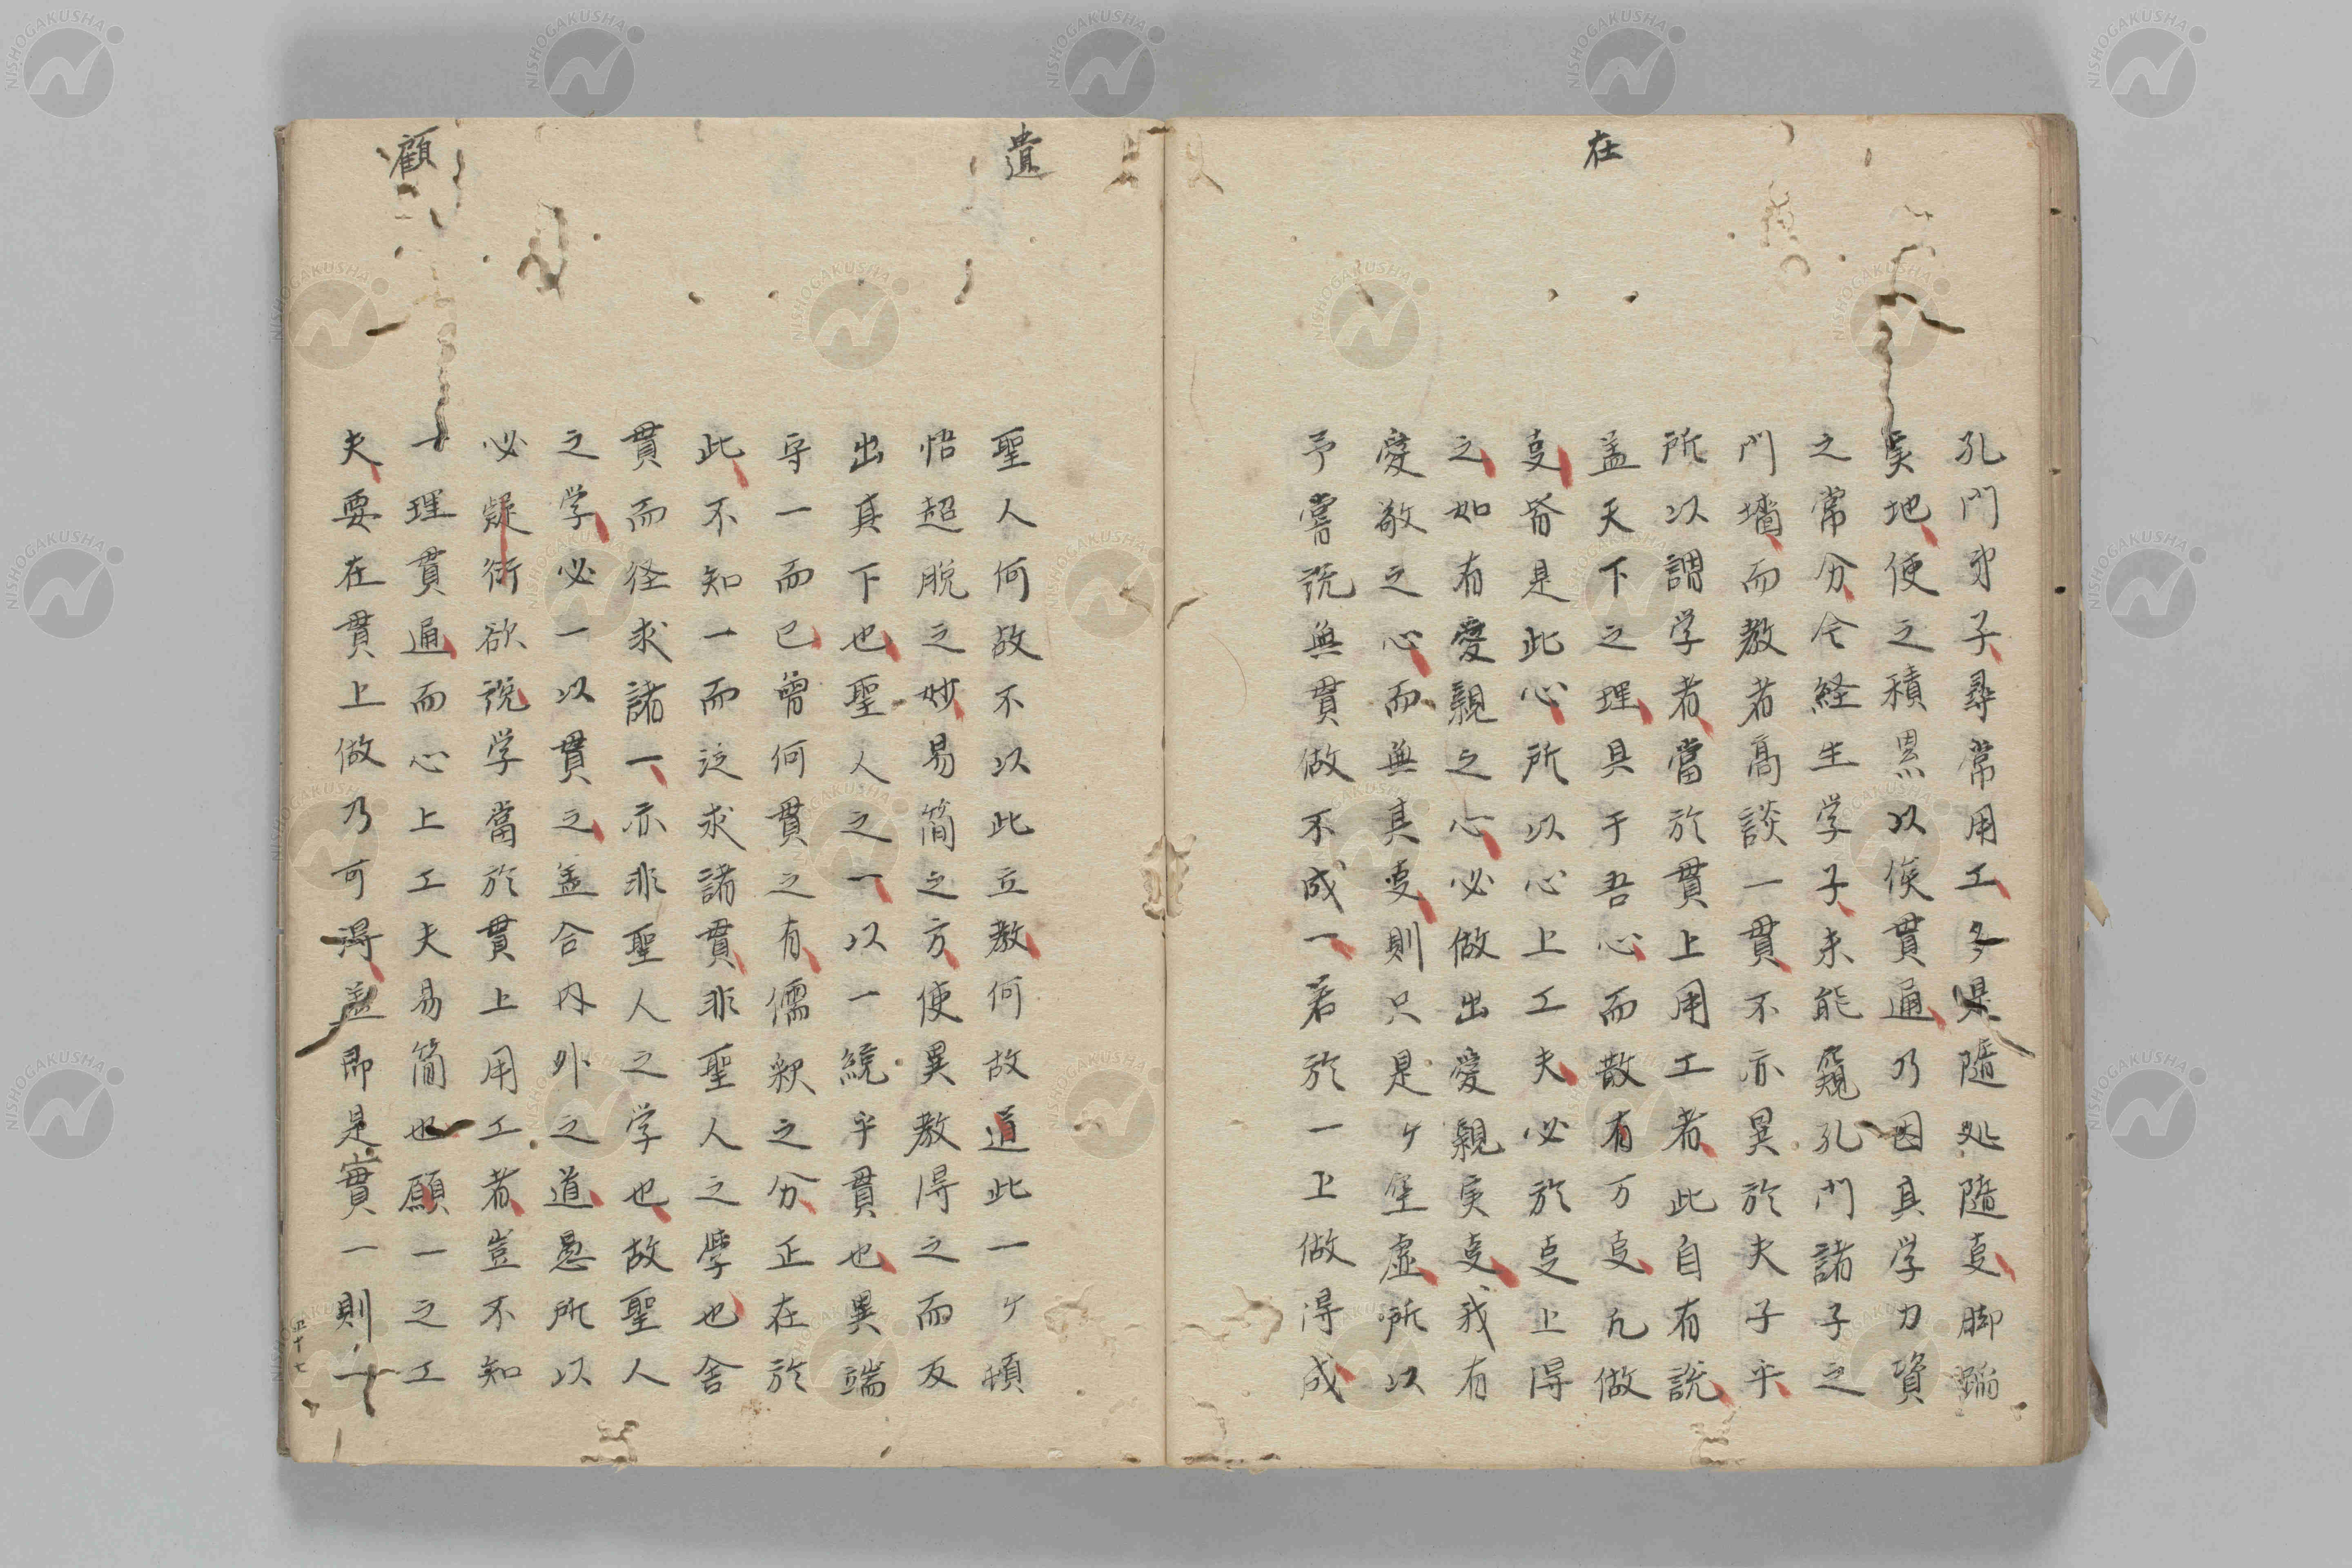 在
孔門弟子尋常用工多是隨処隨㕝脚踏
実地使之積累以俟貫通乃因其学力資
之常分今経生学子未能窺孔門諸子之
門墻而教者高談一貫不亦異於夫子乎
所以謂学者當於貫上用工者此自有説
盖天下之理具于吾心而散有万㕝凢做
㕝皆是此心所以心上工夫必於㕝上得
之如有愛親之心必做出愛親実㕝我有
愛敬之心而無其㕝則只是ケ空虚所以
予嘗説無貫做不成一若於一上做得成
遺
顧
聖人何故不以此立教何故道此一ケ頓
悟超脱之妙易簡之方使異教得之而反
出其下也聖人之一以一統乎貫也異端
守一而已曽何貫之有儒釈之分正在於
此不知一而泛求諸貫非聖人之學也舍
貫而径求諸一亦非聖人之学也故聖人
之学必一以貫之盖合内外之道愚所以
必疑術欲説学當於貫上用工者豈不知
一理貫通而心上工夫易簡也願一之工
夫要在貫上做乃可得盖即是實一則一
五十七
NISHOGAKUSHA